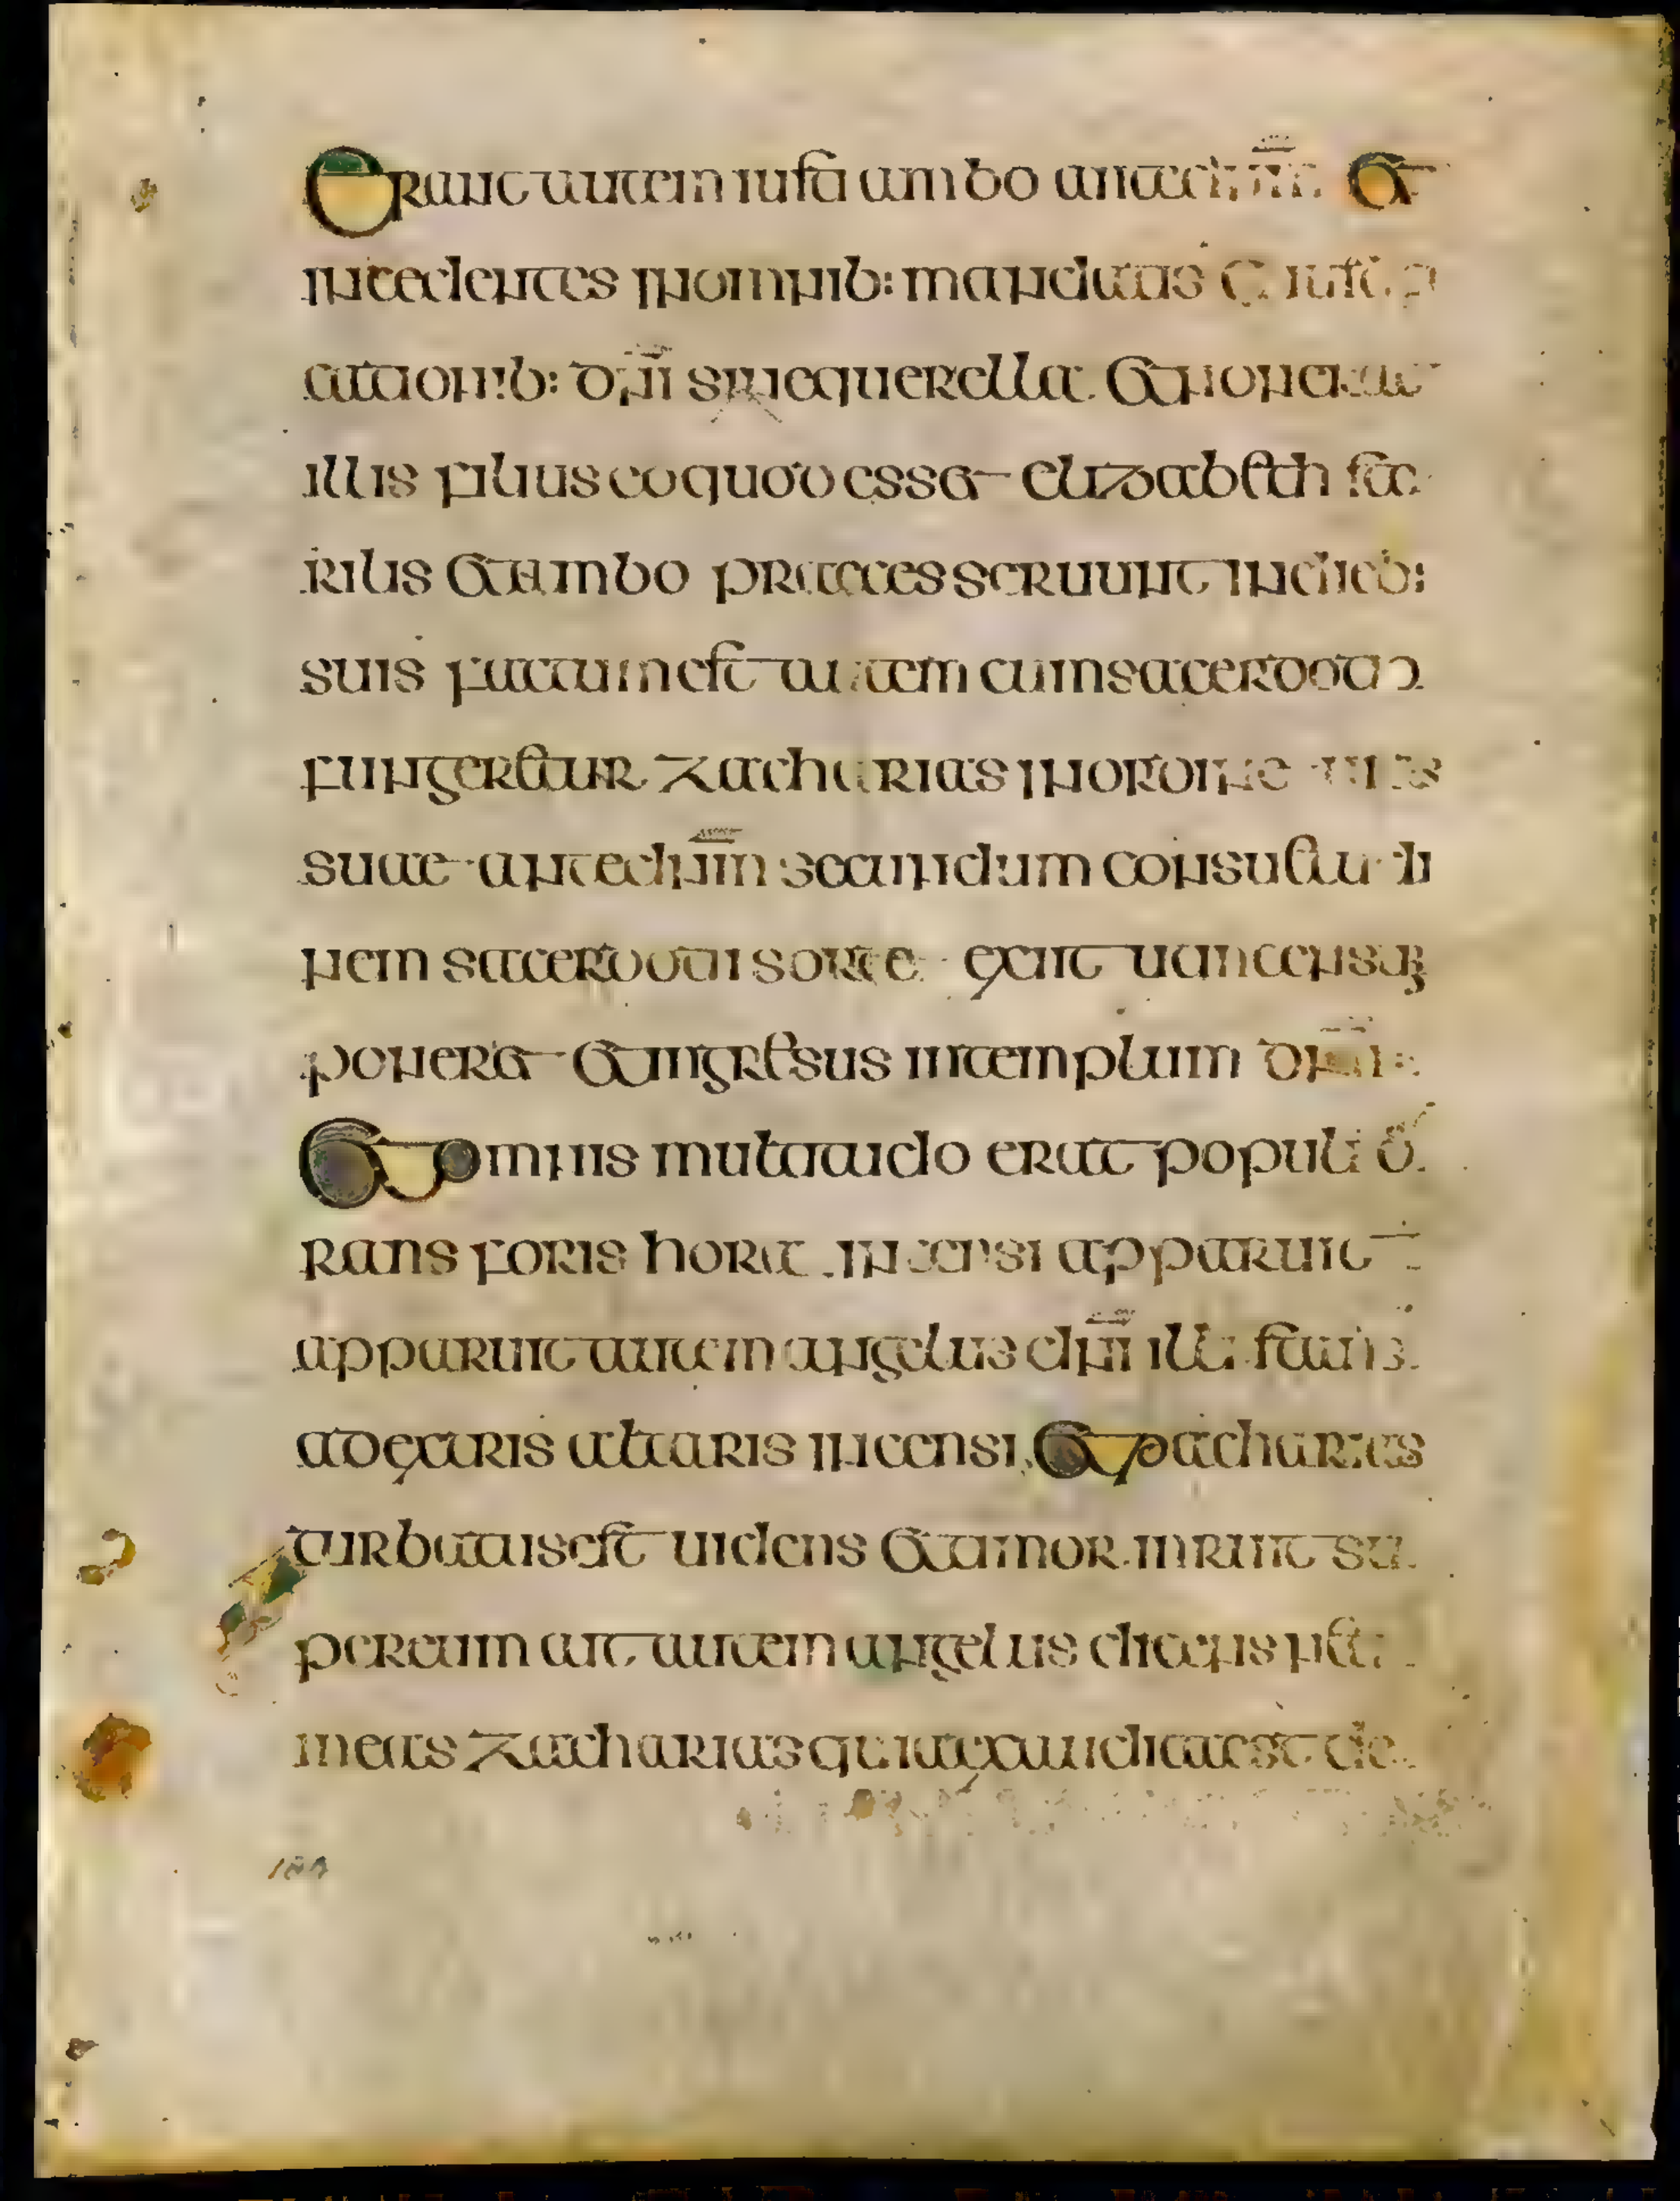 Erant autem iusti ambo ante dnm Et
incedentes inomnib: mandatis et iusti
cationib: dni sinequerella Et nonerat
illis filius eoquod esset elizabeth ste
rilis Et ambo praecesserunt indieb:
suis factum est autem cumsacerdotio
fungeretur zacharias inordine uicis
suae ante dnm secundum consuetu di
nem sacerdotii sorte exiit utincensum
poneret Et ingresus intemplum dni
Et omnis multitudo erat populi o
rans foris hora incensi apparuit
apparuit autem angelus dni illi stans
adextris altaris incensi Et zacharias
turbatus est uidens Et timor inruit su
pereum ait autem angelus dicens ne ti
meas zacharias quiaexaudita est de